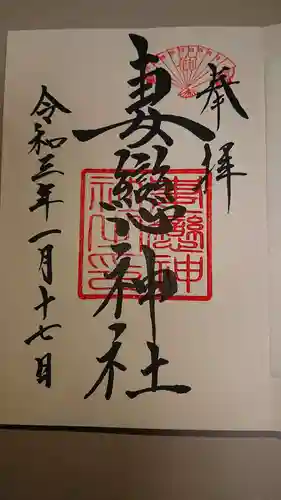 奉拝
妻戀神社
妻戀神社之印
令和三年一月十七日